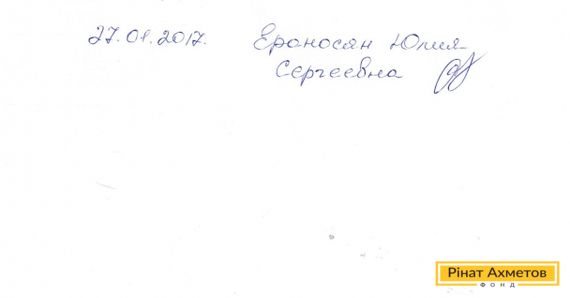 27.01.2017. Ероносян Юлия
Сергеевна
Рінат Ахметов
ФОНД